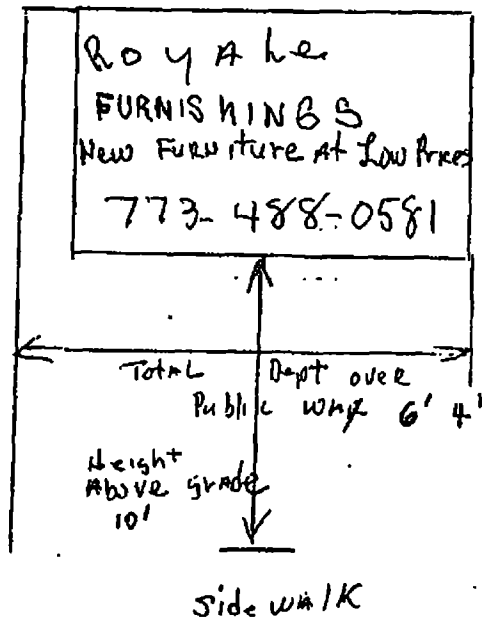 Royale
FURNISHINGS
New Furniture At Low Prices
773-488-0581
Total Dept over
Public Way 6' 4'
Height
Above grade
10'
sidewalk